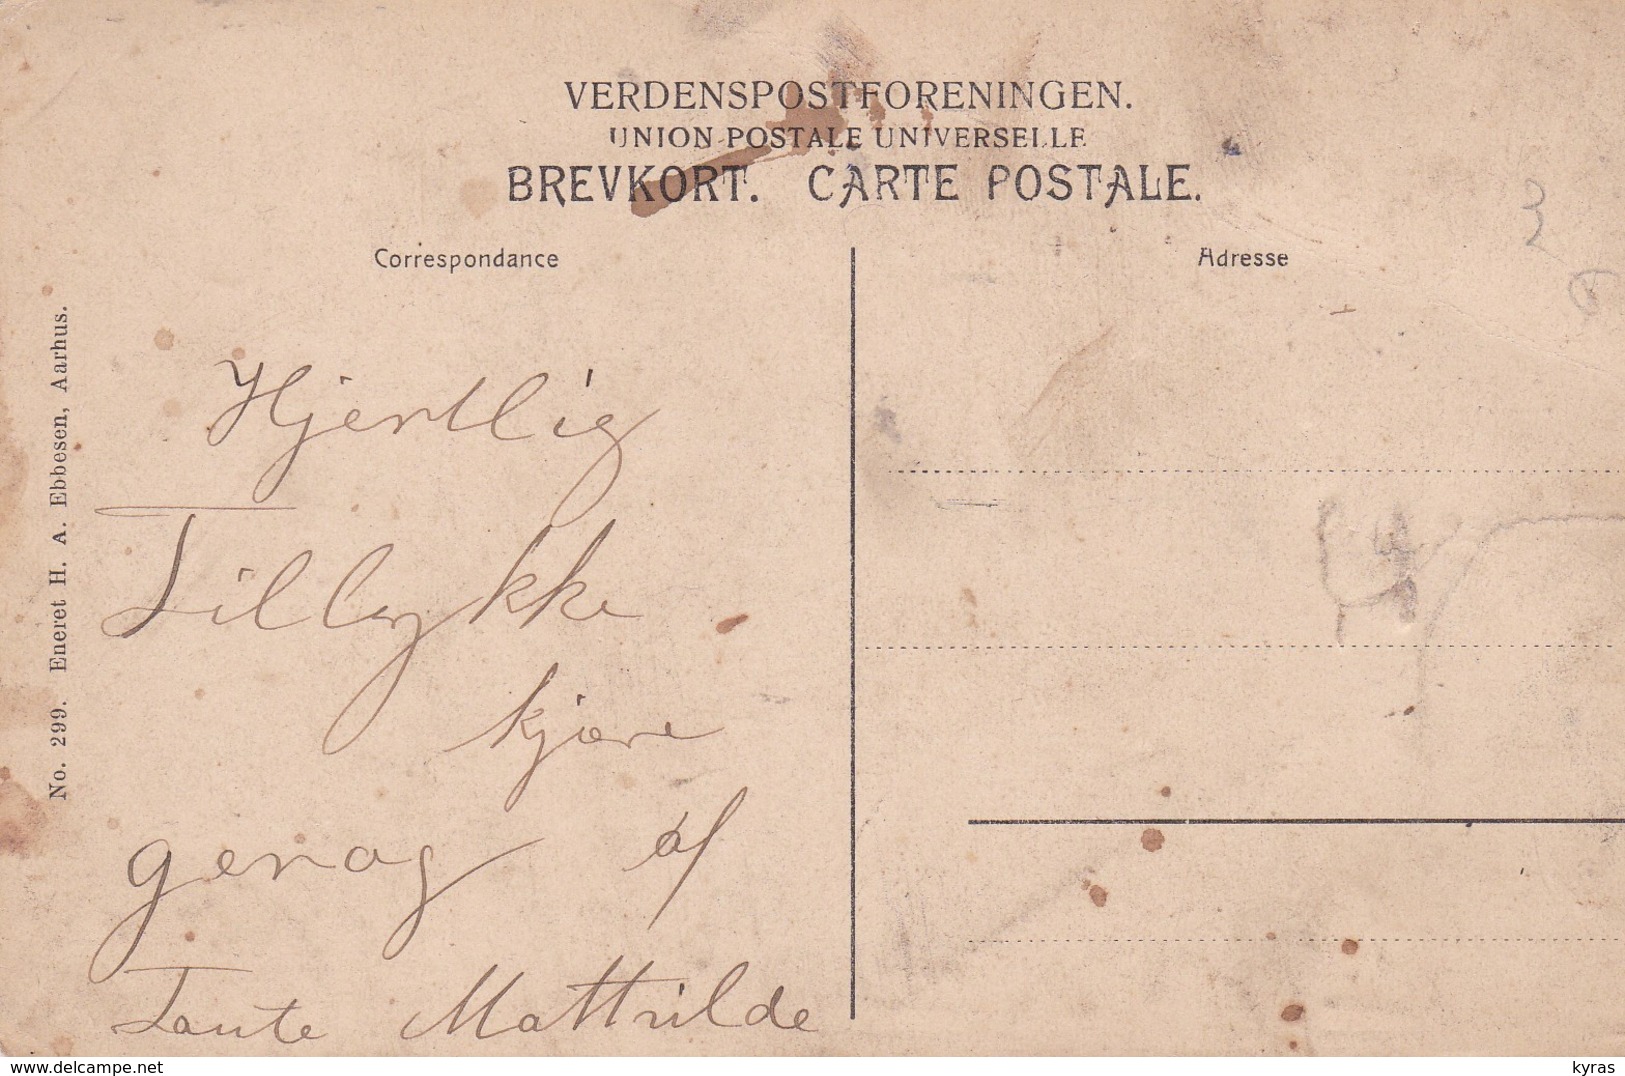 VERDENSPOSTFORENINGEN.
UNION POSTALE UNIVERSELLE
BREVKORT. CARTE POSTALE.
Correspondance
Adresse
3
No. 299. Eneret H. A. Ebbesen, Aarhus.
Hjertlig
Tillykke
kjære
af
Tante Mathilde
www.delcampe.net
kyras